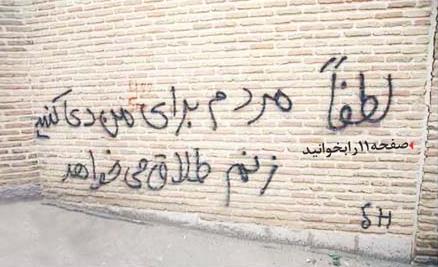 لطفاً مردم برای من دعا کنید
صفحه ۱۱ را بخوانید
زنم طلاق می‌خواهد